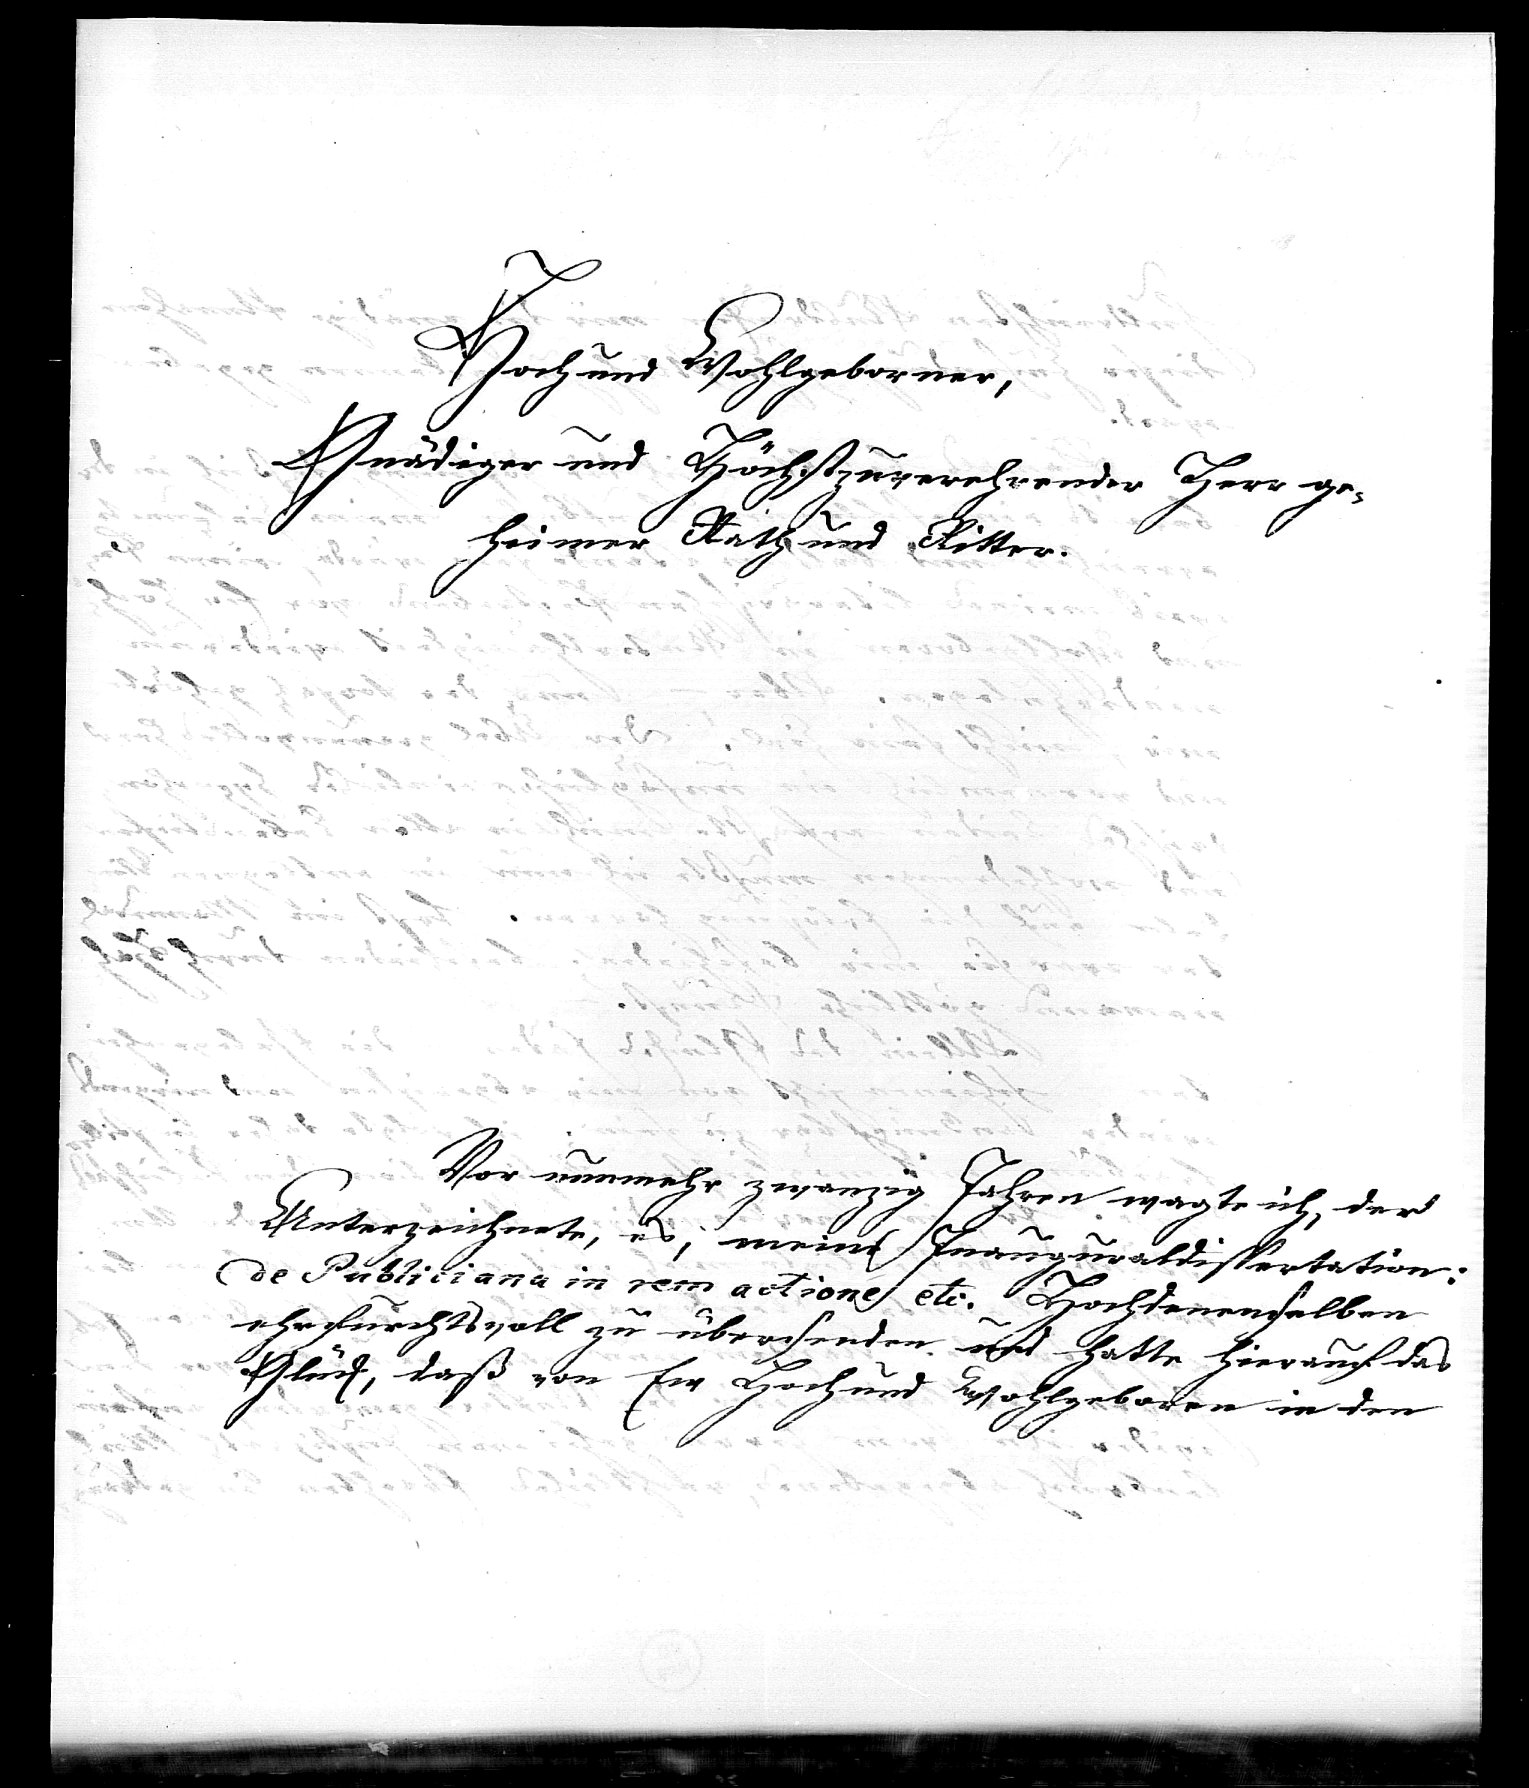 Hoch und Wohlgeborner,
Gnädiger und Höchstzuverehrender Herr ge-
heimer Rath und Ritter.
Vor nunmehr zwanzig Jahren wagte ich, der
Unterzeichnete, es, meine Inauguraldissertation:
de Publiciana in rem actione etc. Hochdenenselben
ehrfurchtsvoll zu übersenden und hatte hierauf das
Glück, daß von Ew Hoch und Wohlgeboren in den